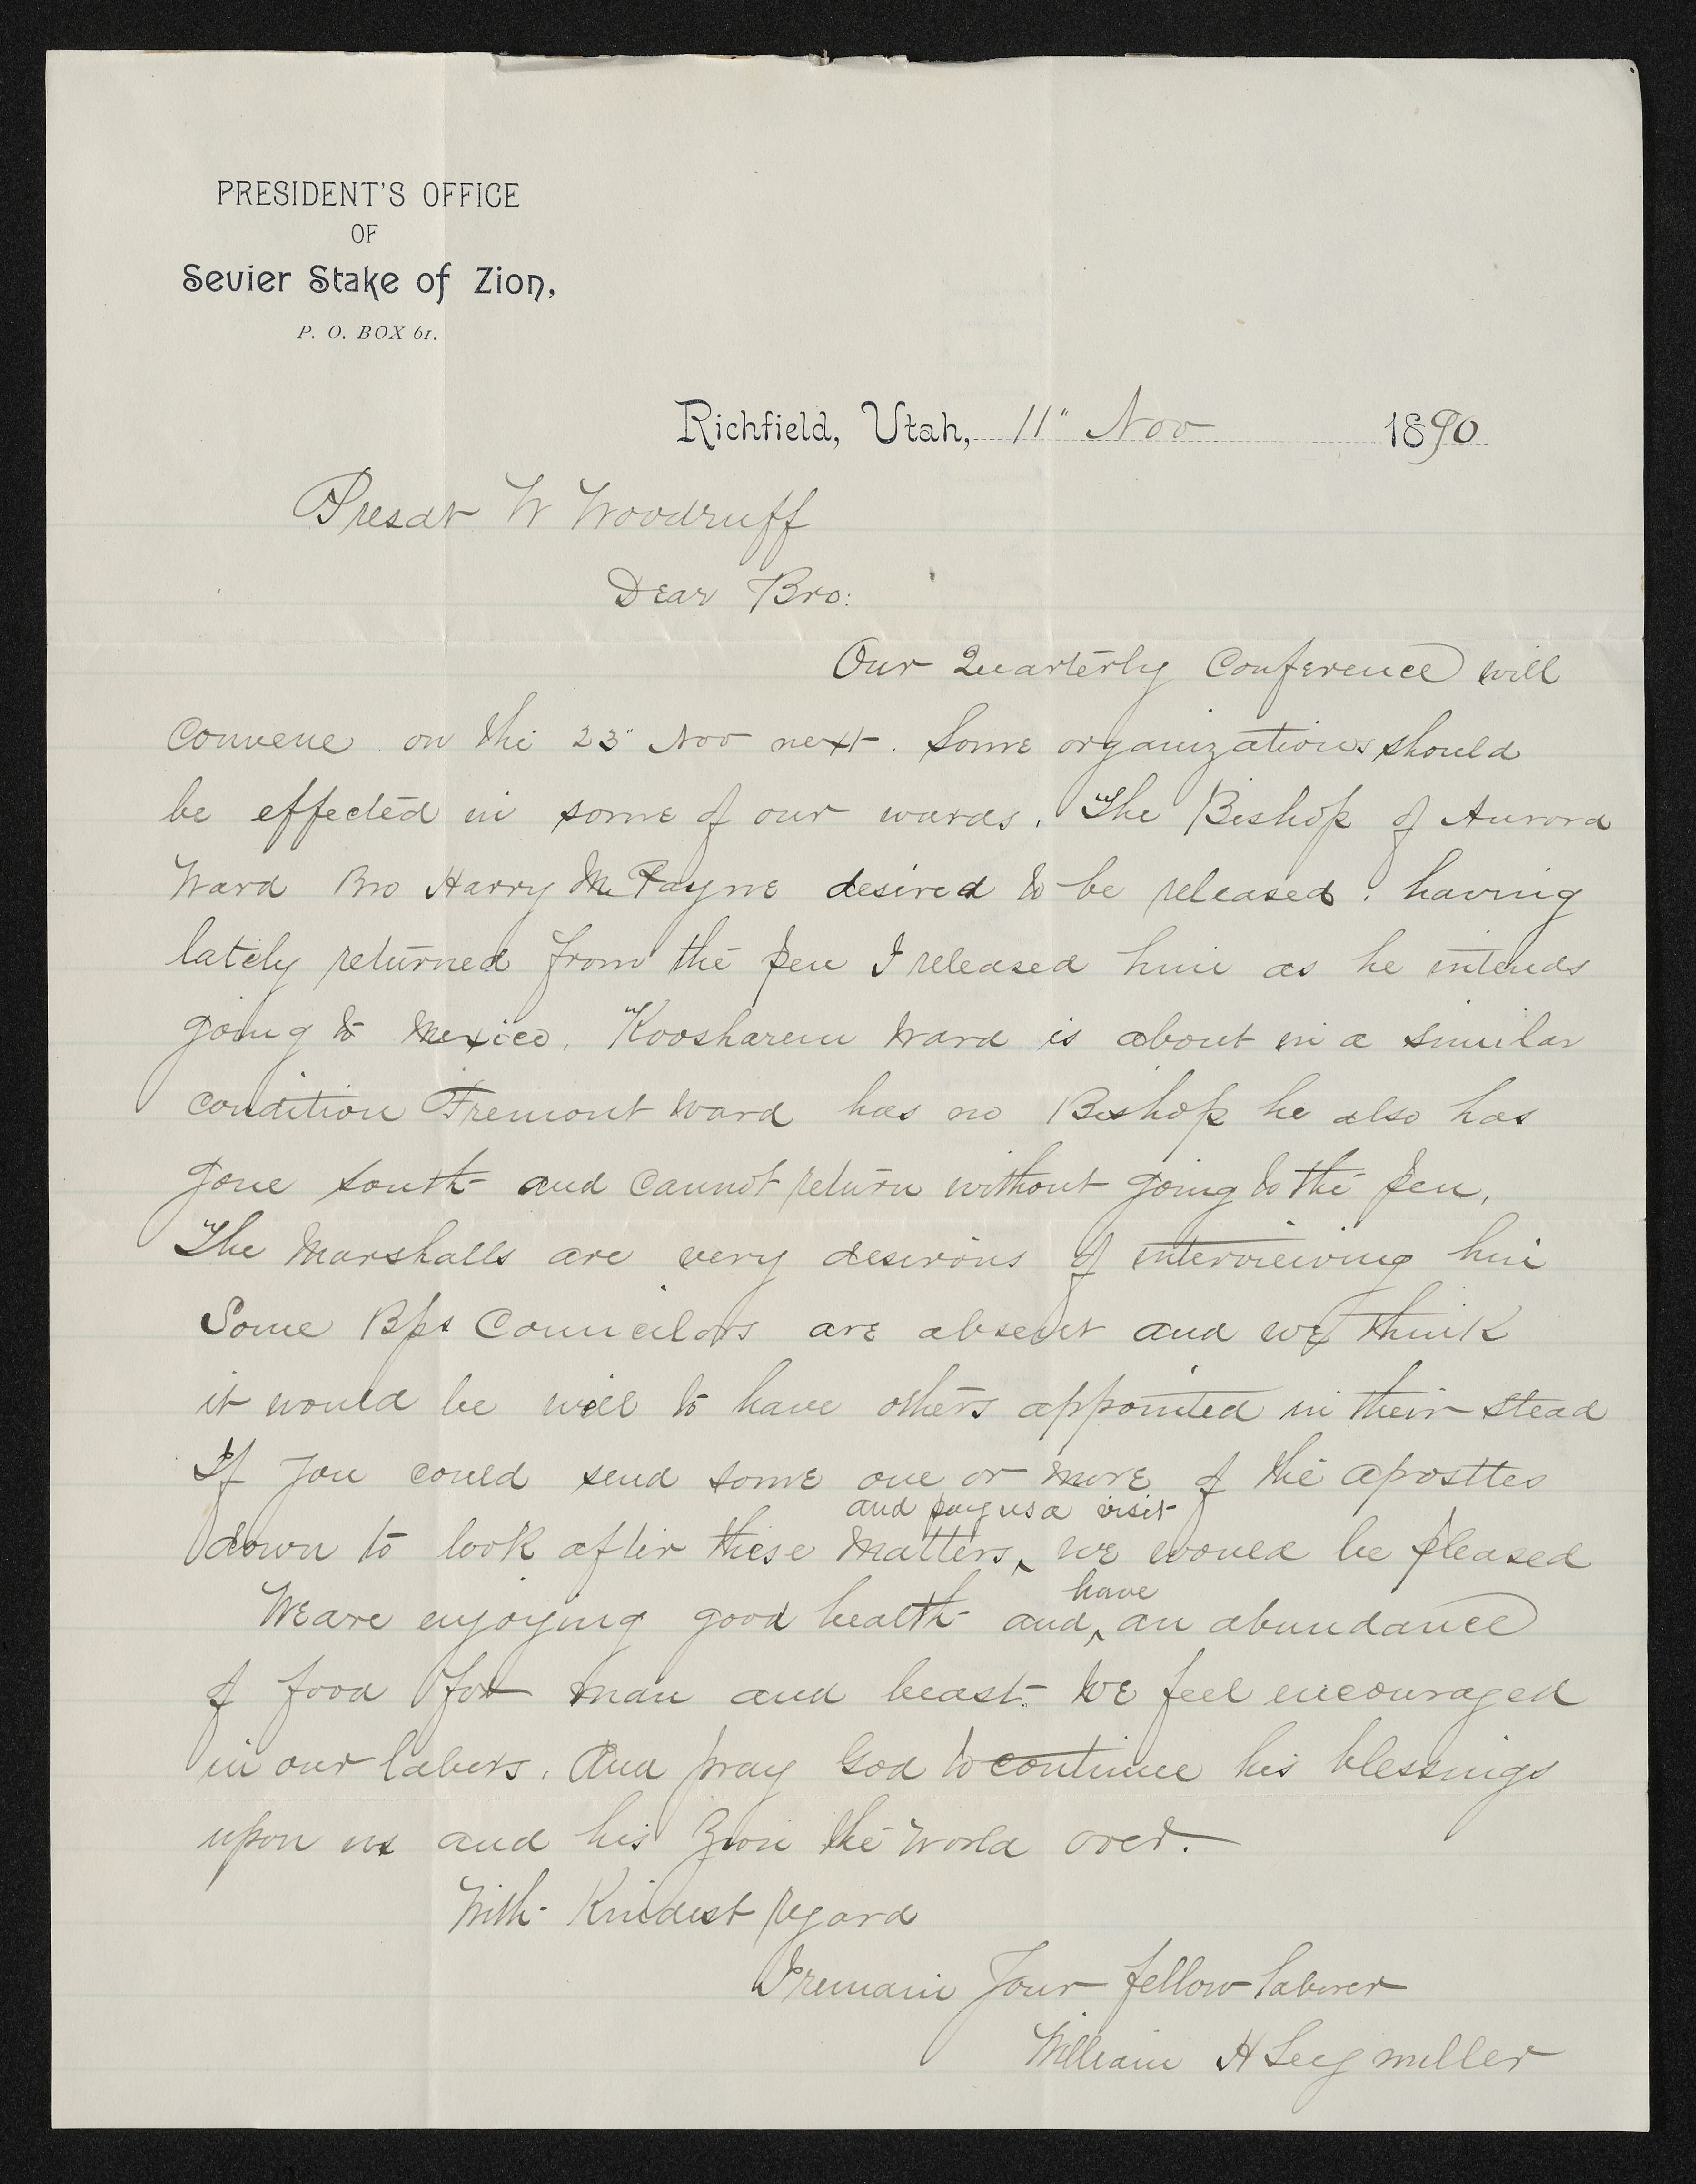 PRESIDENT'S OFFICE
OF
Sevier Stake of Zion,
P. O. BOX 61.
Richfield, Utah, 11" Nov 1890
Presdt W Woodruff
Dear Bro:
Our Quarterly Conference will
convene on the 23" Nov next. Some organizations should
be effected in some of our wards. The Bishop of Aurora
Ward Bro Harry M Payne desired to be released. having
lately returned from the pen I released him as he intends
going to Mexico. Koosharem Ward is about in a similar
condition Fremont Ward has no Bishop he also has
gone south and cannot return without going to the pen.
The Marshalls are very desirous of interviewing him
Some Bps Councilors are absent and we think
it would be well to have others appointed in their stead
If you could send some one or more of the apostles
and pay us a visit
down to look after these matters ‸ we would be pleased
have
We are enjoying good health and ‸ an abundance
of food for man and beast. We feel encouraged
in our labors. And pray God to continue his blessings
upon us and his Zion the world over.
With Kindest regard
I remain Your fellow laborer
William H Seegmiller